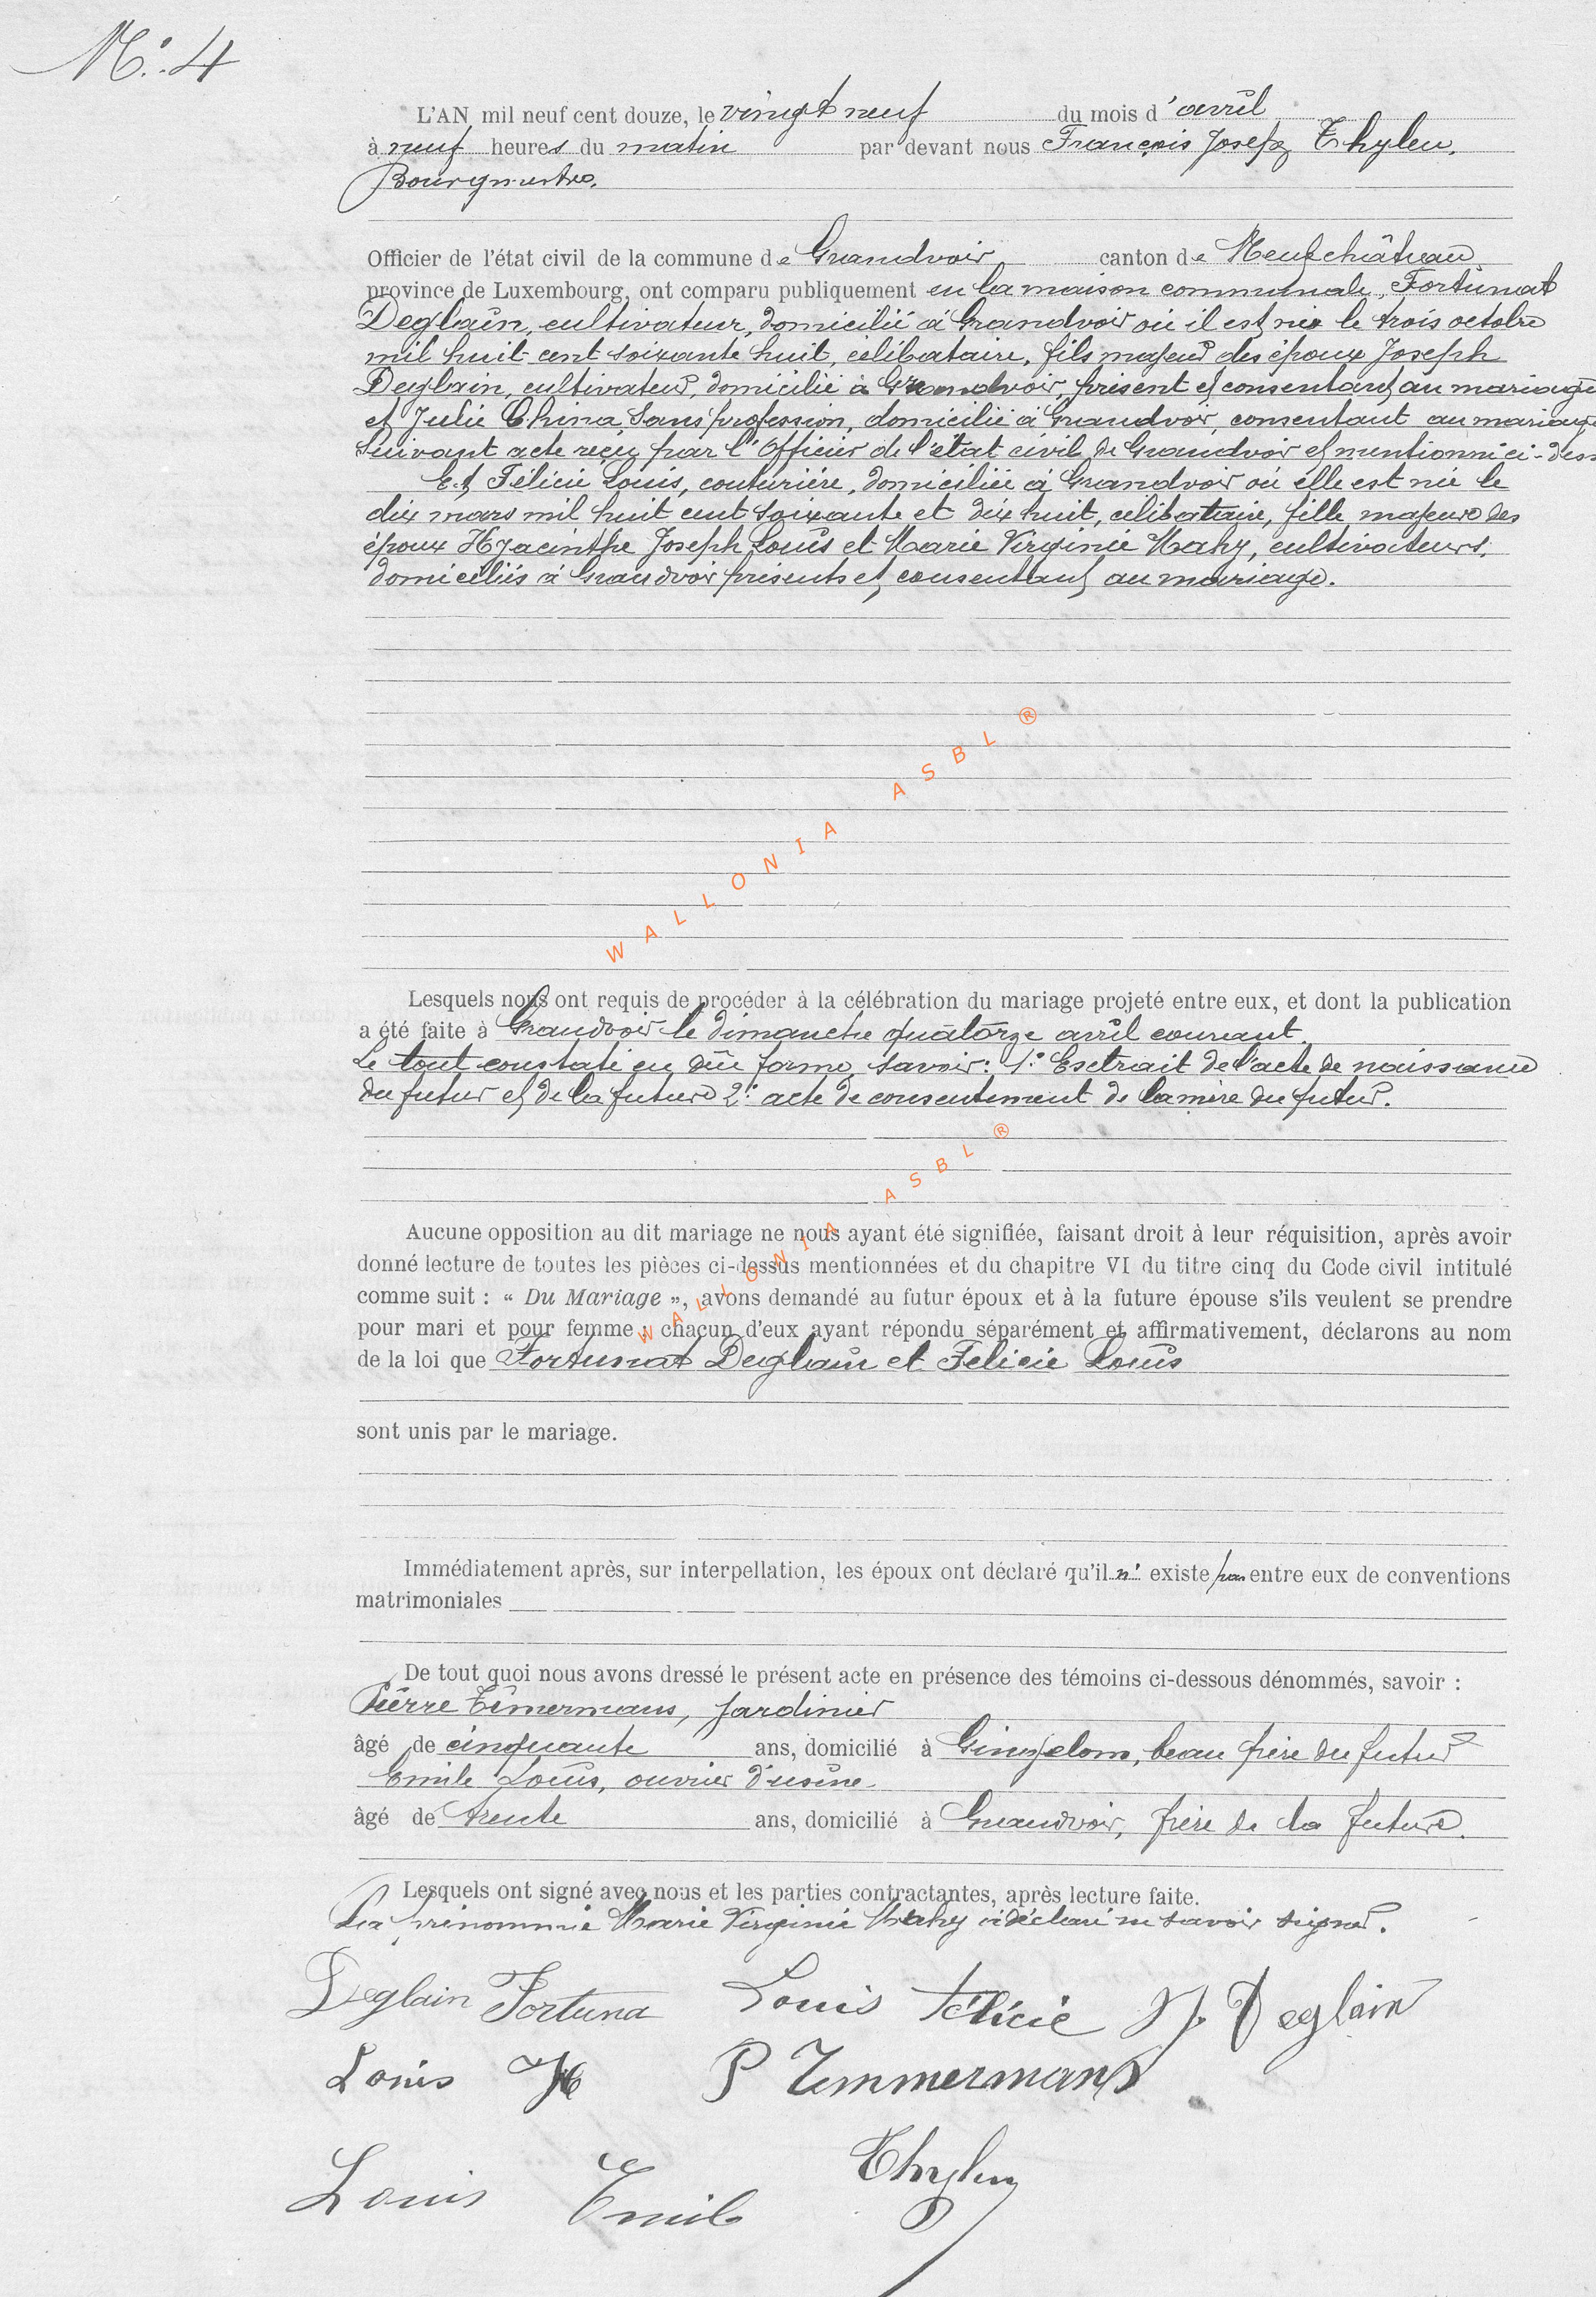 N°. 4
L'AN mil neuf cent douze, le vingt neuf du mois d'avril
à neuf heures du matin par devant nous François Joseph Thylen,
Bourgmestre.
Officier de l'état civil de la commune de Grandvoir canton de Neufchâteau
province de Luxembourg, ont comparu publiquement en la maison communale, Fortunat
Deglain, cultivateur, domicilié à Grandvoir où il est né le trois octobre
mil huit cent soixante huit, célibataire, fils majeur des époux Joseph
Deglain, cultivateur, domicilié à Grandvoir, présent et consentant au mariage
et Julie China, sans profession, domicilié à Grandvoir, consentant au mariage
suivant acte reçu par l'Officier de l'état civil de Grandvoir et mentionné ci-dess
Et Félicie Louis, couturière, domiciliée à Grandvoir où elle est née le
dix mars mil huit cent soixante et dix huit, célibataire, fille majeure des
époux Hyacinthe Joseph Louis et Marie Virginie Mahy, cultivateurs,
domiciliés à Grandvoir présents et consentant au mariage.
WALLONIA ASBL ®
Lesquels nous ont requis de procéder à la célébration du mariage projeté entre eux, et dont la publication
a été faite à Grandvoir le dimanche quatorze avril courant.
Le tout constaté en due forme, savoir: 1.° Exctrait de l'acte de naissance
du futur et de la future 2.° acte de consentement de la mère du futur.
WALLONIA ASBL ®
Aucune opposition au dit mariage ne nous ayant été signifiée, faisant droit à leur réquisition, après avoir
donné lecture de toutes les pièces ci-dessus mentionnées et du chapitre VI du titre cinq du Code civil intitulé
comme suit : « Du Mariage », avons demandé au futur époux et à la future épouse s'ils veulent se prendre
pour mari et pour femme ; chacun d'eux ayant répondu séparément et affirmativement, déclarons au nom
de la loi que Fortunat Deglain et Félicie Louis
sont unis par le mariage.
Immédiatement après, sur interpellation, les époux ont déclaré qu'il n' existe pas entre eux de conventions
matrimoniales
De tout quoi nous avons dressé le présent acte en présence des témoins ci-dessous dénommés, savoir :
Pierre Timermans, jardinier
âgé de cinquante ans, domicilié à Gingelom, beau frère du futur
Emile Louis, ouvrier d'usine
âgé de trente ans, domicilié à Grandvoir, frère de la future.
Lesquels ont signé avec nous et les parties contractantes, après lecture faite.
La prénommée Marie Virginie Mahy a déclaré ne savoir signer.
Deglain Fortuna Louis Félicie J. Deglain
Louis H P Temmermans
Thylen
Louis Emile